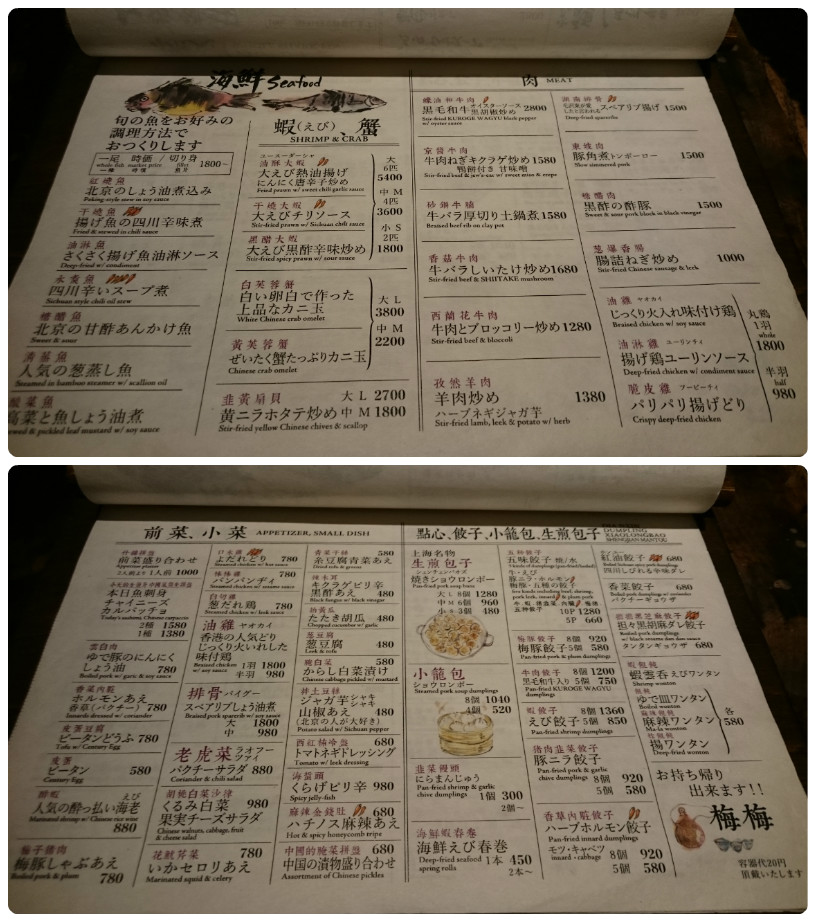 海鮮 Seafood
旬の魚をお好みの
調理方法で
おつくりします
一尾 時価 / 切り身 1800~
紅燒魚
北京のしょう油煮込み
Peking-style stew in soy sauce
干燒魚
揚げ魚の四川辛味煮
Fried & stewed in chili sauce
油淋魚
さくさく揚げ魚油淋ソース
Deep-fried w/ condiment
水煮魚
四川辛いスープ煮
Sichuan style chili oil stew
糖醋魚
北京の甘酢あんかけ魚
Sweet & sour
清蒸魚
人気の葱蒸し魚
Steamed in bamboo steamer w/ scallion oil
酸菜魚
高菜と魚しょう油煮
pickled leaf mustard w/ soy sauce
蝦(えび)、蟹
SHRIMP & CRAB
油酥大蝦
大えび熱油揚げ
にんにく唐辛子炒め
Fried prawn w/ sweet chili garlic sauce
干燒大蝦
大えびチリソース
Stir-fried prawn w/ Sichuan chili sauce
黒醋大蝦
大えび黒酢辛味炒め
Stir-fried spicy prawn w/ sour sauce
大
6匹
5400
中 M
4匹
3600
小 S
2匹
1800
白芙蓉蟹
白い卵白で作った
上品なカニ玉
White Chinese crab omelet
黄芙蓉蟹
ぜいたく蟹たっぷりカニ玉
Chinese crab omelet
大 L
3800
中 M
2200
韭黃扇貝 大 L 2700
黄ニラホタテ炒め 中 M 1800
Stir-fried yellow Chinese chives & scallop
肉 MEAT
蠔油和牛肉
黒毛和牛 オイスターソース 黒胡椒炒め 2800
Stir-fried KUROGE WAGYU black pepper
w/ oyster sauce
京醤牛肉
牛肉ねぎキクラゲ炒め 1580
鴨餅付き 甘味噌
砂鍋牛腩
牛バラ厚切り土鍋煮 1580
Braised beef rib on clay pot
香菇牛肉
牛バラしいたけ炒め 1680
Stir-fried beef & SHIITAKE mushroom
西蘭花牛肉
牛肉とブロッコリー炒め 1280
Stir-fried beef & bloccoli
孜然羊肉
羊肉炒め 1380
ハーブネギジャガ芋
Stir-fried lamb, leek & potato w/ herb
スペアリブ揚げ 1500
Deep-fried spareribs
東坡肉
豚角煮トンポーロー 1500
Slow simmered pork
糖醋肉
黒酢の酢豚 1500
Sweet & sour pork block in black vinegar
葱爆香腸
腸詰ねぎ炒め 1000
Stir-fried Chinese sausage & leek
油雞 ヤオカイ
じっくり火入れ味付け鶏
Braised chicken w/ soy sauce
油淋雞 ユーリンチィ
揚げ鶏ユーリンソース
Deep-fried chicken w/ condiment sauce
脆皮雞
パリパリ揚げどり
Crispy deep-fried chicken
丸鶏
1羽
whole
1800
半羽
half
980
前菜、小菜 APPETIZER, SMALL DISH
什錦拼盤
前菜盛り合わせ
1人前 1000
本日魚刺身
チャイニーズ
カルパッチョ
2種 1580
1種 1380
雲白肉
ゆで豚のにんにく
しょう油 780
Boiled pork w/ garlic & soy sauce
香菜內臟
ホルモンあえ
香草(パクチー) 780
Innards dressed w/ coriander
皮蛋豆腐
ピータンどうふ 770
Tofu w/ Century Egg
皮蛋
ピータン 580
Century Egg
醉蝦 えび
人気の酔っ払い海老
880
梅子豬肉
梅豚しゃぶあえ
Boiled pork & plum 780
口水雞
よだれどり 780
棒棒雞
バンバンヂィ 780
白切雞
葱だれ鶏 780
Steamed chicken w/ leek sauce
油雞 ヤオカイ
香港の人気どり
じっくり火いれした
味付鶏
1羽 1800
半羽 980
排骨 パイグー
スペアリブしょう油煮
大 1800
中 980
老虎菜 ラオフーツァイ
パクチーサラダ 880
Coriander & chili salad
胡桃白菜沙律
くるみ白菜 980
果実チーズサラダ
Chinese walnuts, cabbage, fruit
& cheese salad
花魷芹菜 780
いかセロリあえ
Marinated squid & celery
青菜干絲 580
糸豆腐青菜あえ
Dried tofu & greens
辣木耳
キクラゲピリ辛
黒酢あえ 480
Black fungus w/ black vinegar
拍黄瓜
たたき胡瓜 480
Chopped cucumber w/ garlic
葱豆腐
葱豆腐 480
Leek & tofu
辣白菜 580
からし白菜漬け
Chinese cabbage pickled w/ mustard
拌土豆絲
ジャガ芋シャキシャキ
山椒あえ 480
(北京の人が大好き)
Potato salad w/ Sichuan pepper
西紅柿冷盤 680
トマトネギドレッシング
Tomato w/ leek dressing
海蜇頭
くらげピリ辛 980
Spicy jelly-fish
麻辣金錢肚 680
ハチノス麻辣あえ
Hot & spicy honeycomb tripe
中國的腌菜拼盤 680
中国の漬物盛り合わせ
Assortment of Chinese pickles
點心、餃子、小籠包、生煎包子
DUMPLING
XIAOLONGBAO
SHENGJIAN MANTOU
上海名物
生煎包子
焼きショウロンポー
Pan-fried pork soup buns
大 L 8個 1280
中 M 6個 960
小 S 3個 480
小籠包
ショウロンポー
Steamed pork soup dumplings
8個 1040
4個 520
韭菜饅頭
にらまんじゅう
Pan-fried shrimp & garlic
chive dumplings 1個 300
2個~
海鮮蝦春巻
海鮮えび春巻
Deep-fried seafood 1本 450
spring rolls 2本~
五種餃子
五味餃子 焼/水
豚ニラ・ホルモン
梅豚・五種の餃子
10P 1280
5P 660
梅豚餃子 8個 920
梅豚餃子 5個 580
Pan-fried pork & plum dumplings
牛肉餃子 8個 1200
黒毛和牛入り 5個 750
Pan-fried KUROGE WAGYU
dumplings
蝦餃子 8個 1360
えび餃子 5個 850
Pan-fried shrimp dumplings
豬肉韭菜餃子
豚ニラ餃子
Pan-fried pork & garlic
chive dumplings 8個 920
5個 580
香草內臟餃子
ハーブホルモン餃子
Pan-fried innard dumplings
モツ・キャベツ 8個 920
innard・cabbage 5個 580
紅油餃子 680
四川しびれる辛味ダレ
香菜餃子 680
パクチーギョウザ
担々黒胡麻ダレ餃子
タンタンギョウザ 680
蝦餛飩
蝦雲呑えびワンタン
Shrimp wonton
ゆで皿ワンタン
Boiled wonton
麻辣ワンタン
揚ワンタン
Deep-fried wonton
各
580
お持ち帰り
出来ます!!
梅梅
容器代20円
頂戴いたします